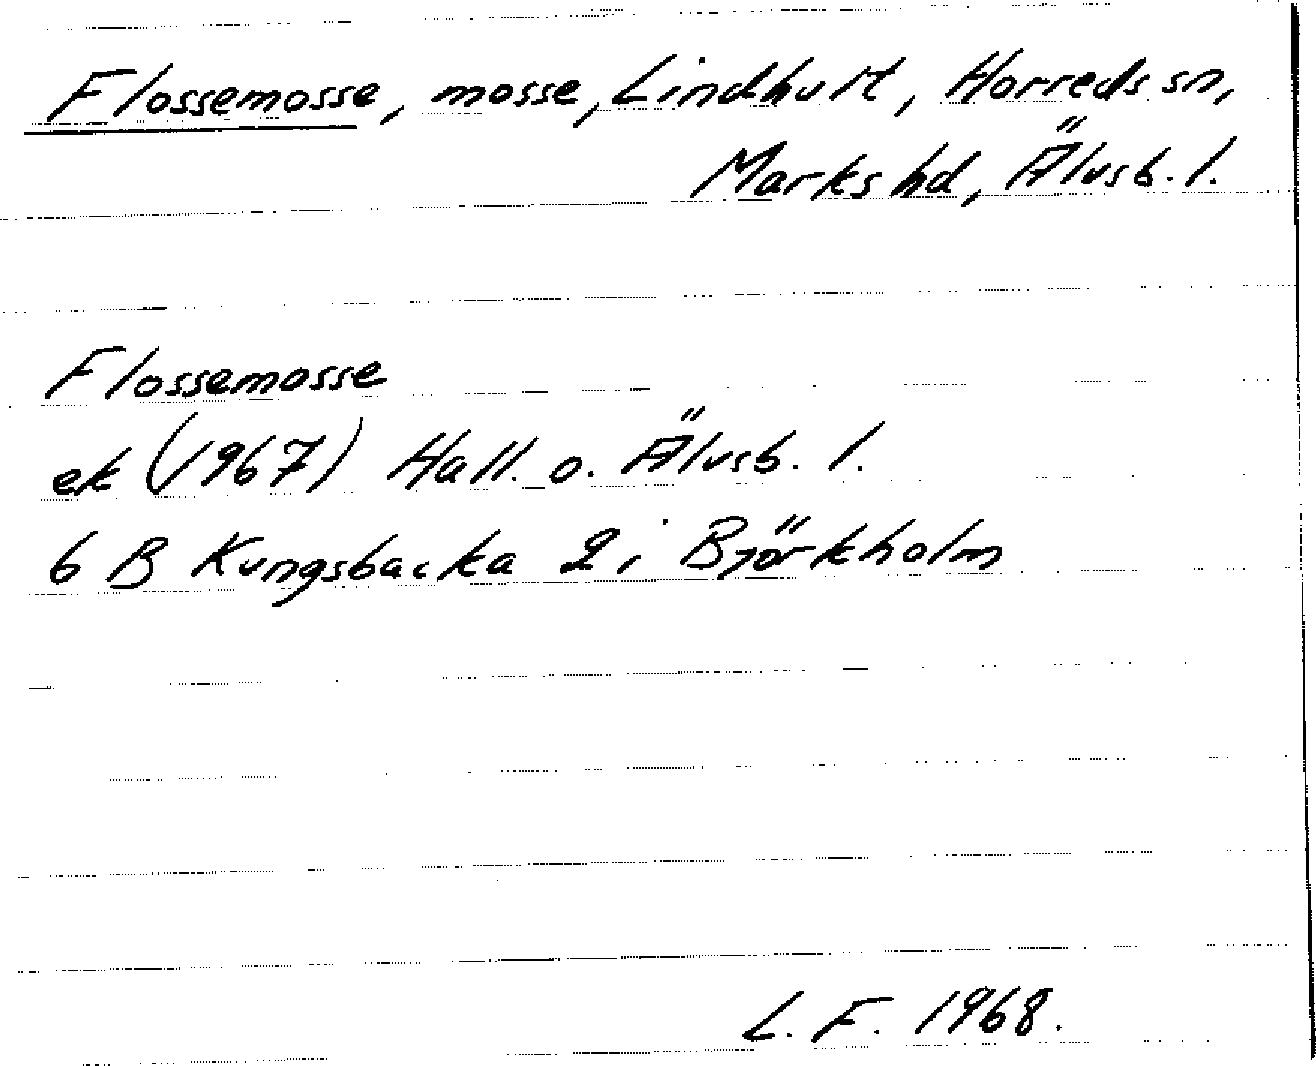 Flossemosse, mosse, Lindhult, Horreds sn,
Marks hd, Älvsb. l.
Flossemosse
ek (1967) Hall. o. Älvsb. l.
6 B Kungsbacka 2 i Björkholm
L. F. 1968.